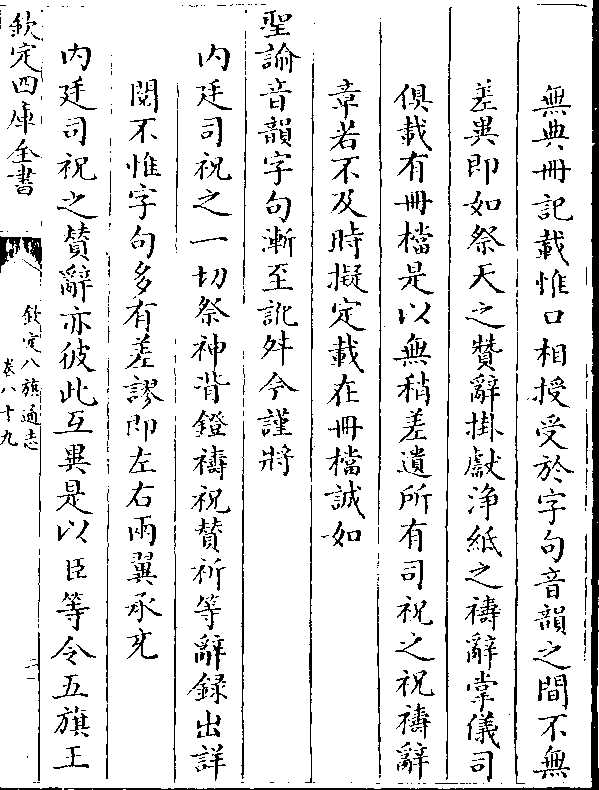 無典冊記載惟口相授受於字句音韻之間不無
差異即如祭天之贊辭掛獻淨紙之禱辭掌儀司
俱載有冊檔是以無稍差遺所有司祝之祝禱辭
章若不及時擬定載在冊檔誠如
聖諭音韻字句漸至訛舛今謹將
内廷司祝之一切祭神背鐙禱祝贊祈等辭録出詳
閱不惟字句多有差謬即左右兩翼承充
内廷司祝之贊辭亦彼此互異是以臣等令五旗王
欽定四庫全書
欽定八旗通志
卷八十九
二